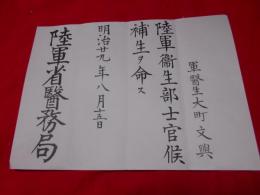 軍醫生大町文興
陸軍衞生部士官候
補生ヲ命ス
明治廿九年八月十五日
陸軍省醫務局